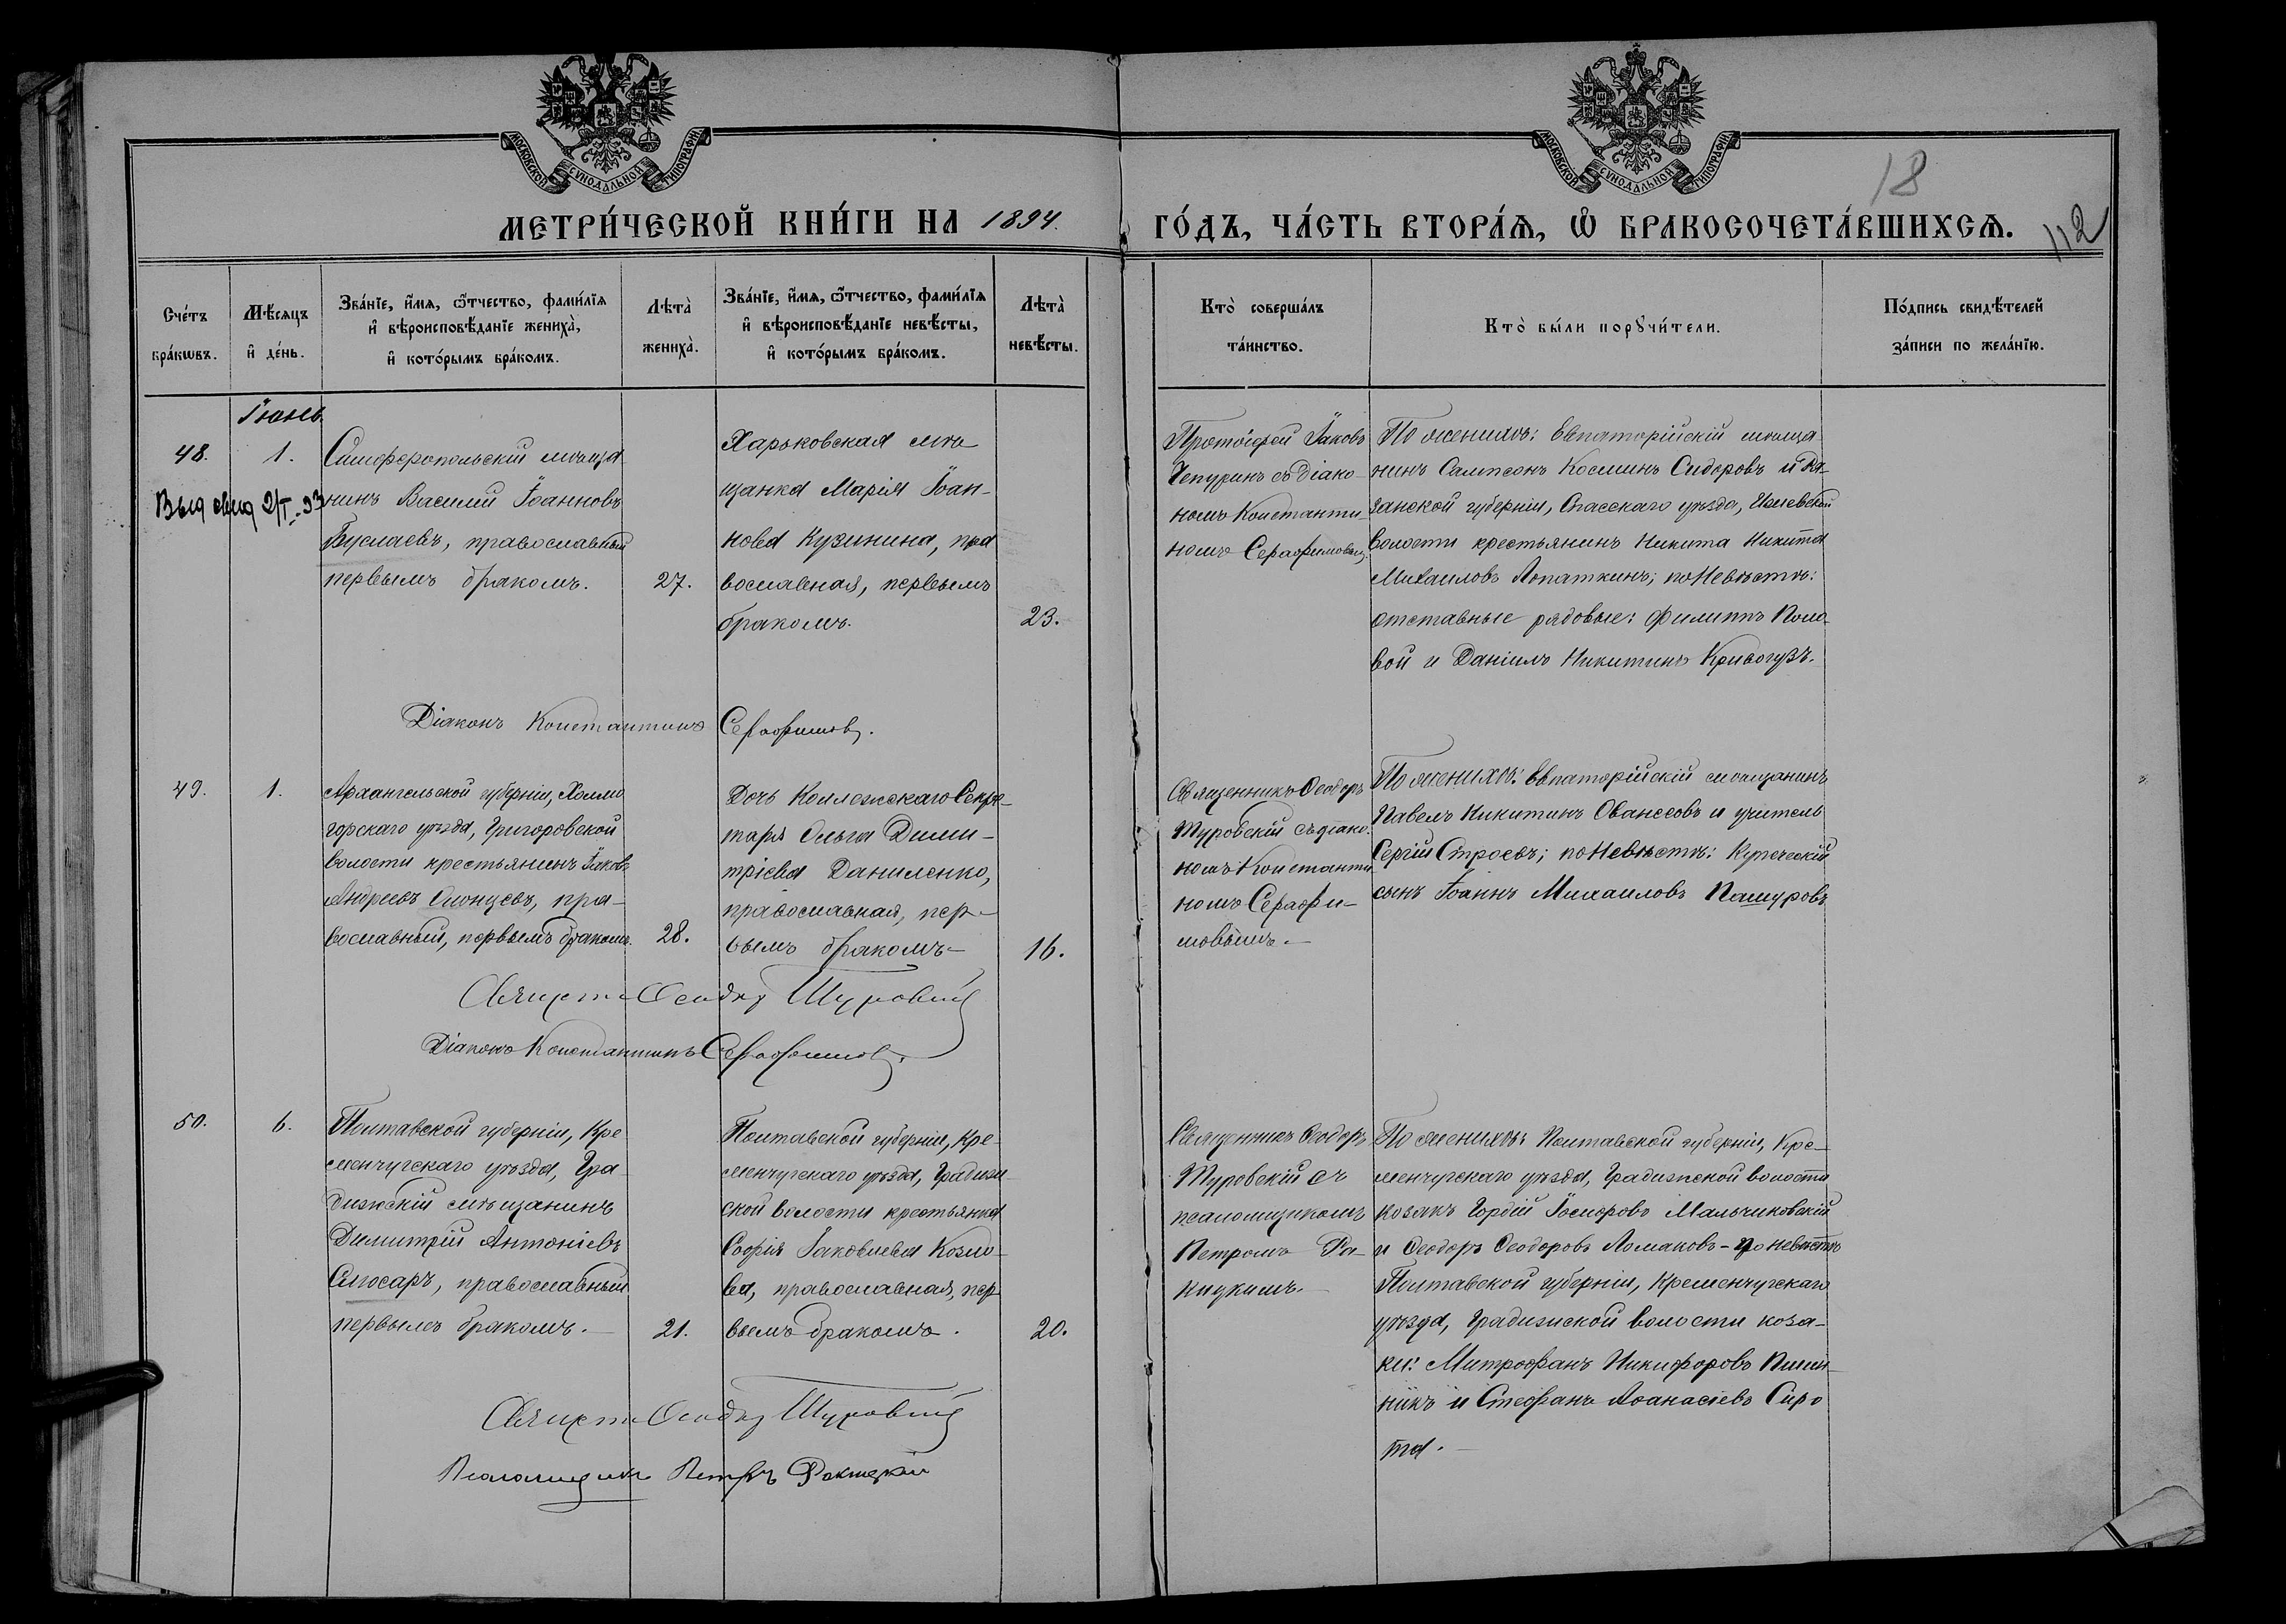 МОСКОВСКОЙ СѴНОДАЛЬНОЙ ТИПОГРАФІИ
МОСКОВСКОЙ СѴНОДАЛЬНОЙ ТИПОГРАФІИ
18
МЕТРИ́ЧЕСКОЙ КНИ́ГИ НА 1894.
ГО́ДЪ, ЧА́СТЬ ВТОРА́Ѧ, Ѽ БРАКОСОЧЕТА́ВШИХСѦ.
112
Сче́тъ бра́кѡвъ.
Мѣ́сѧцъ и҆ де́нь.
Зва́нїе, и҆́мѧ, ѻ҆́тчество, фами́лїѧ
и҆ вѣроисповѣ́данїе жениха̀,
и҆ кото́рымъ бра́комъ.
Лѣта̀ жениха̀.
Зва́нїе, и҆́мѧ, ѻ҆́тчество, фами́лїѧ
и҆ вѣроисповѣ́данїе невѣ́сты,
и҆ кото́рымъ бра́комъ.
Лѣта̀ невѣ́сты.
Кто̀ соверша́лъ
та́инство.
Кто̀ бы́ли порꙋчи́тели.
По́дпись свидѣ́телей
за́писи по жела́нїю.
Іюнь.
48.
1.
Выд свид 2/I-33
Симферопольскій мѣща
нинъ Василій Іоанновъ
Буслаевъ, православный
первымъ бракомъ.
27.
Харьковская мѣ
щанка Марія Іоан-
нова Кузинина, пра
вославная, первымъ
бракомъ.
23.
Протоіерей Іаковъ
Чепуринъ съ діако
номъ Константи
номъ Серафимовымъ
По женихѣ: Евпаторійскій мѣща
нинъ Сампсонъ Косминъ Сидоровъ и Ря-
занской губерніи, Спасскаго уѣзда, Ижевской
волости крестьянинъ Никита Никита
Михаиловъ Лопаткинъ; по невѣстѣ:
отставные рядовые: Филиппъ Поло-
вой и Даніилъ Никитинъ Кривогузъ.
Діаконъ Константинъ Серафимовъ.
49.
1.
Архангельской губерніи, Холмо
горскаго уѣзда, Григоровской
волости крестьянинъ Іаковъ
Андреевъ Олонцевъ, пра-
вославный, первымъ бракомъ.
28.
Дочь Коллежскаго Секре-
таря Ольга Дими-
тріева Даниленко,
православная, пер-
вымъ бракомъ-
16.
Священникъ Ѳеодоръ
Шуровскій съ діако-
номъ Константи
номъ Серафи-
мовымъ.-
По женихѣ: Евпаторійскій мѣщанинъ
Павелъ Никитинъ Ованесовъ и учитель
Сергій Строевъ; по невѣстѣ: Купеческій
сынъ Іоаннъ Михаиловъ Пашуровъ
Священ Ѳеодоръ Шуровскій
Діаконъ Константинъ Серафимовъ.
50.
6.
Полтавской губерніи, Кре
менчугскаго уѣзда, Гра
дижскій мѣщанинъ
Димитрій Антоніевъ
Слюсарь, православный
первымъ бракомъ.-
21.
Полтавской губерніи, Кре-
менчугскаго уѣзда, Градиж
ской волости крестьянка
Софія Іаковлева Козло-
ва, православная, пер
вымъ бракомъ.
20.
Священникъ Ѳеодоръ
Шуровскій съ
псаломщикомъ
Петромъ Ра-
кицкимъ.
По женихѣ: Полтавской губерніи, Кре-
менчугскаго уѣзда, Градижской волости
козакъ Гордій Іосифовъ Мальчиковскій
и Ѳеодоръ Ѳеодоровъ Ломаковъ - по невѣстѣ
Полтавской губерніи, Кременчугскаго
уѣзда, Градижской волости коза-
ки: Митрофанъ Никифоровъ
и Стефанъ Аѳанасіевъ Сиро
та.-
Священ Ѳеодоръ Шуровскій
Псаломщикъ Петръ Ракицкій